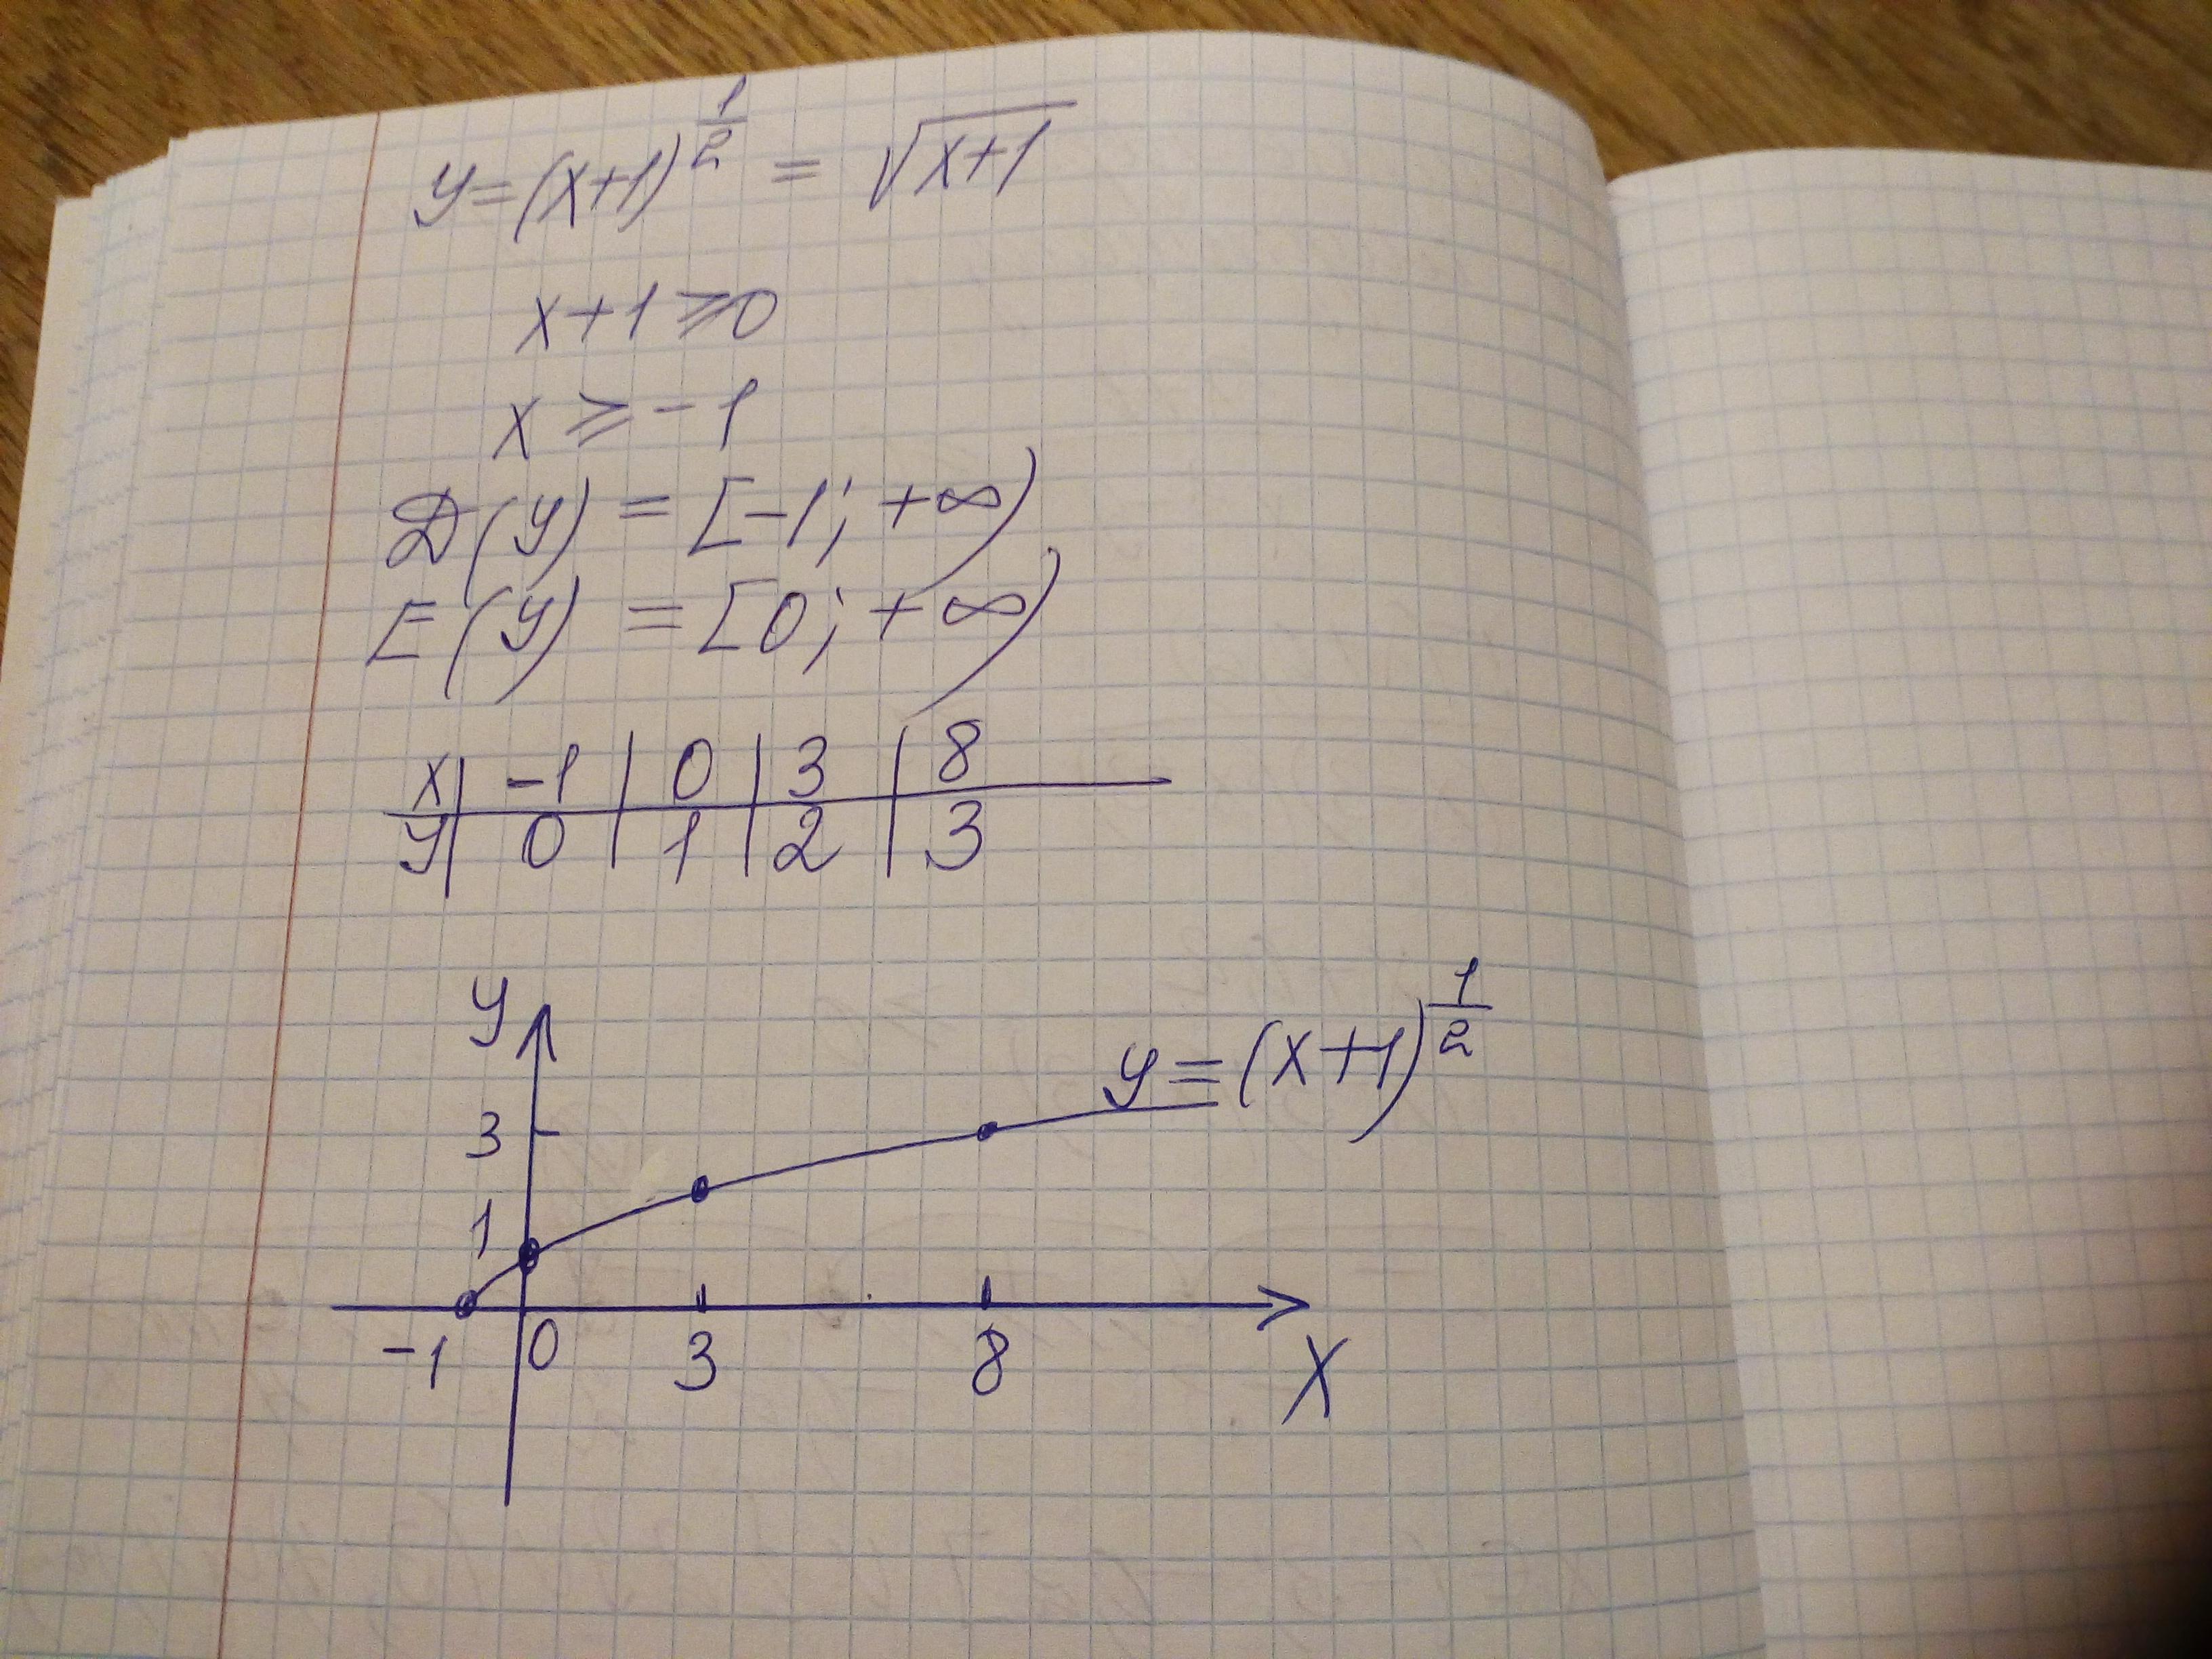 y=(x+1)^{1/2} = √(x+1)
x+1⩾0
x ⩾ -1
D(y) = [-1; +∞)
E(y) = [0; +∞)
x | -1 | 0 | 3 | 8
y | 0 | 1 | 2 | 3
y
y=(x+1)^{1/2}
3
1
-1 0 3 8 X